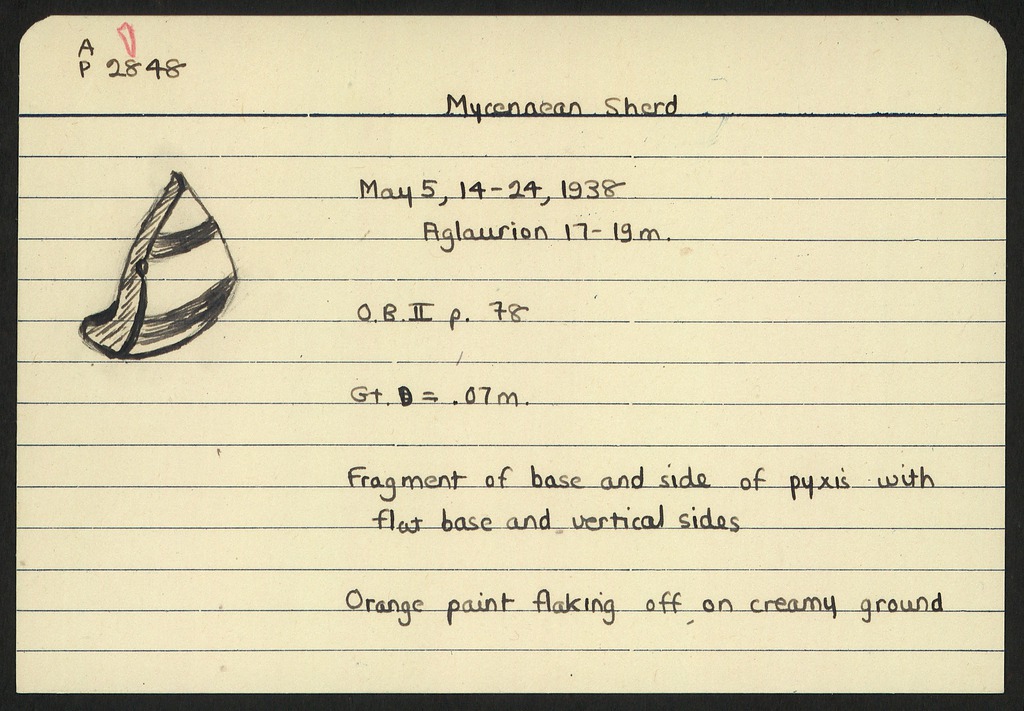 A
P 2848
Mycenaean Sherd
May 5, 14-24, 1938
Aglaurion 17-19m.
O.B.II p. 78
Gt. D = .07m.
Fragment of base and side of pyxis with
flat base and vertical sides
Orange paint flaking off on creamy ground